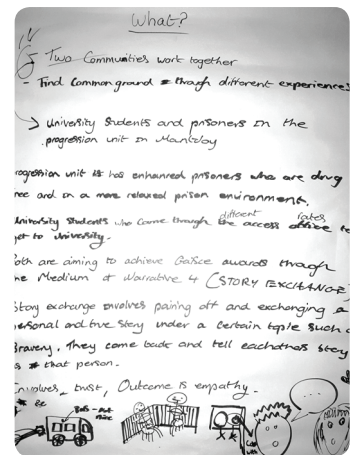 What?
Two Communities work together
- Find Common ground through different experience
University Students and prisoners in the
progression unit in Mountjoy
rogression unit has enhanced prisoners who are drug
ree and in a more relaxed prison environment.
University Students who came through the different access rates
get to University.
oth are aiming to achieve Gaisce awards through
he Medium of Narrative 4 (STORY EXCHANGE
Story exchange involves pairing off and exchanging a
ersonal and true story under a certain topic such a
Bravery. They come back and tell eachothers story
s that person.
nvolves trust, Outcome is empathy.